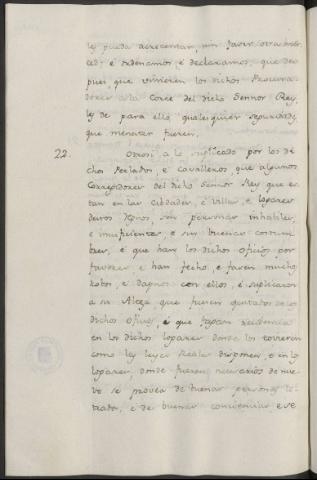 ley pueda acrecentar, nin facer otra mer-
ced; é ordenamos, é declaramos, que des-
pues que vinieren los dichos Procura-
dores a la Corte del dicho Sennor Rey,
les de para ello qualesquier seguridades,
que menester fueren.
22. Otrosi, a lo suplicado por los di-
chos Perlados, é Cavalleros, que algunos
Corregidores del dicho Sennor Rey que es-
tan en las cibdades, é Villas, é logares
destos Regnos, son personas inhabiles,
é insuficientes, é sin buenas costum-
bres, é que han los dichos oficios por
favores, é han fecho, é facen muchos
robos, é dagnos con ellos, é suplicaron
a su Alteza que fuesen quitados de los
dichos oficios, é que fagan residencia
en los dichos logares donde los tovieron
como las leyes Reales disponen, é en los
logares, donde fueren necesarios de nue-
vo se provea de buenas personas le-
tradas, é de buenas conciencias, é se